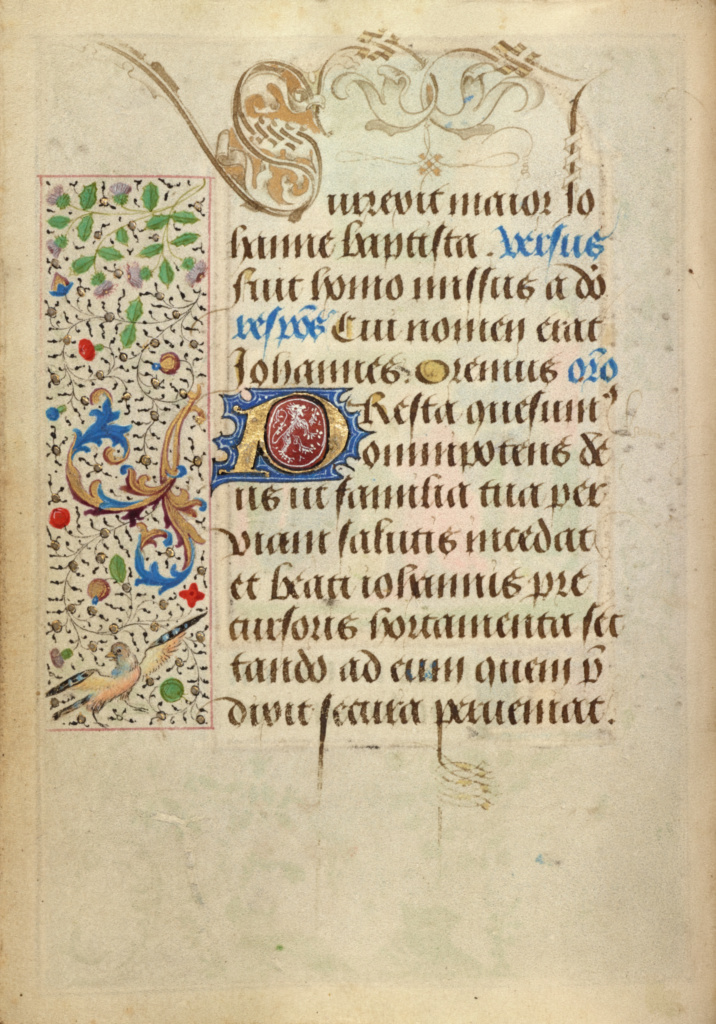 Surrexit maior Io
hanne baptista. versus
fuit homo missus a dō
respōs Cui nomen erat
Iohannes. Oremus orō
PResta quesumꝰ
omnipotens de
us ut familia tua per
viam salutis incedat
et beati iohannis pre
cursoris hortamenta sec
tando ad eum quem p̄
dixit secura perveniat.